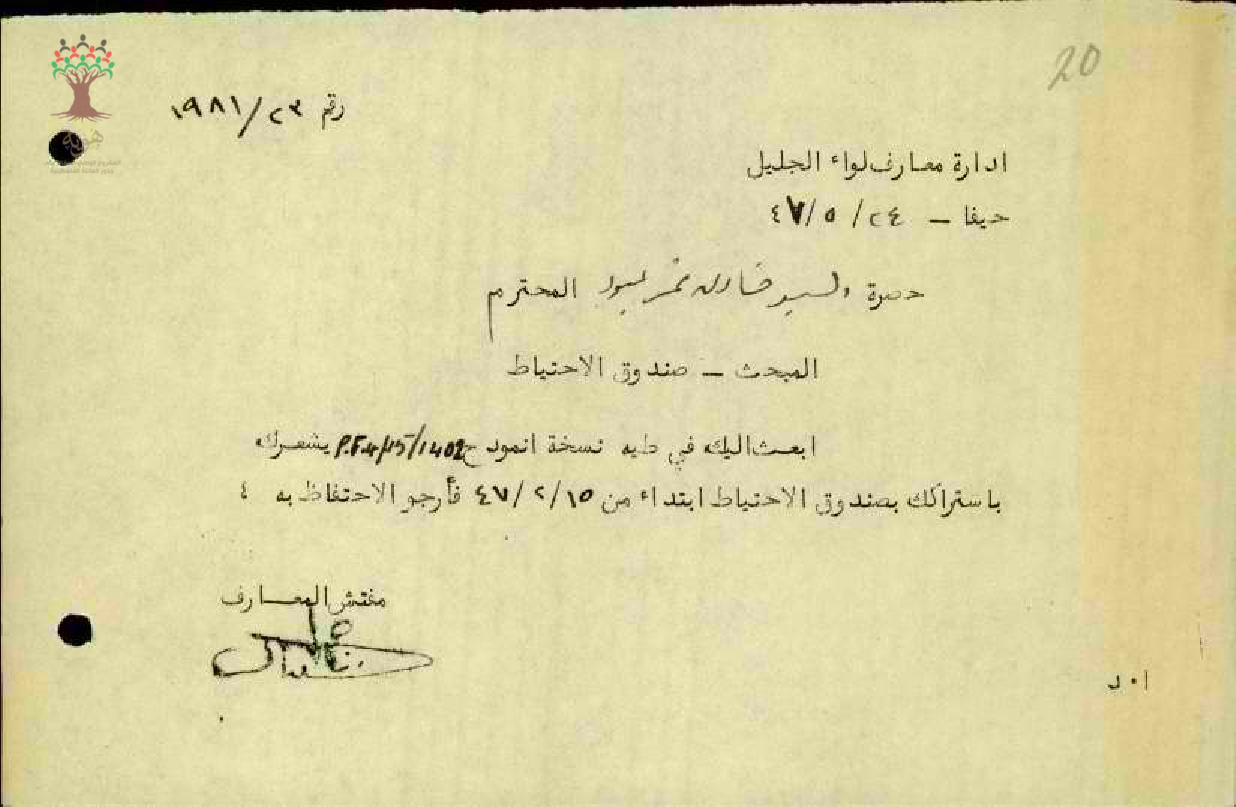 20
رقم ١٩٨١/٢٣
ادارة معارف لواء الجليل
حيفا - ٢٤/ ٥ /٤٧
حضرة السيد نمر المحترم
المبحث - صندوق الاحتياط
ابعث اليك في طيه نسخة انموذج P.F.4/15/1402 يشعرك
باستراكك بصندوق الاحتياط ابتداء من ٤٧/٢/١٥ فأرجو الاحتفاظ به ٤
مفتش المعارف
ا٠د
هوية